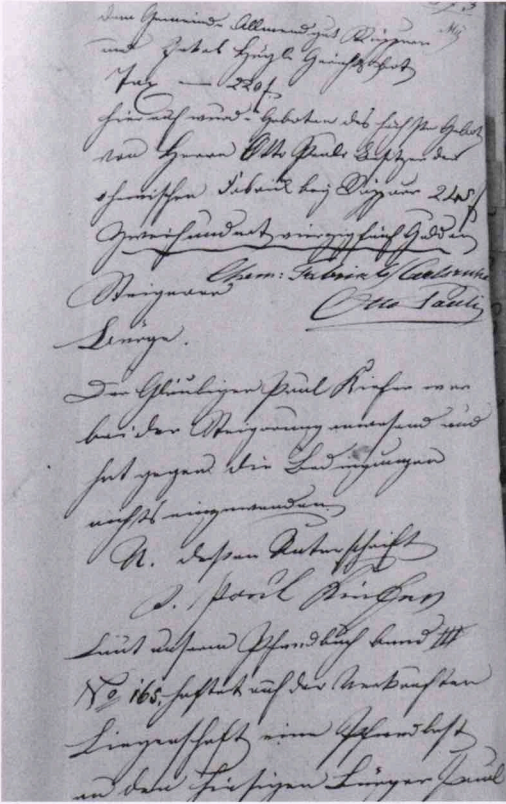 dem Gemeinde Allmendgut
und Jakob Hügle Gerichtsbot
Tax — 220 f
hierauf wurde Geboten das höchste Gebot
von Herrn Otto Pauli Besitzer der
chemischen Fabrik bei 245 f
Zweihundert vierzig fünf Gulden
Chem: Fabrik Carlsruhe
Steigerer Otto Pauli
Bürge.
Der Gläubiger Paul Kiefer war
bei der Steigerung anwesend und
hat gegen die Bedingungen
nichts einzuwenden
U. dessen Unterschrift
Paul Kiefer
Laut unserm Pfandbuch band III
No 165, haftet auf der Verkauften
Liegenschaft eine Pfandlast
an den hiesigen Bürger Paul